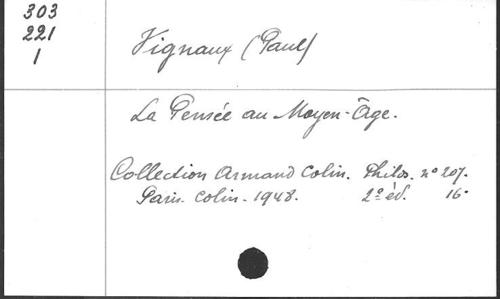 303
221
1
Vignaux (Paul)
La Pensée au Moyen-Âge.
Collection Armand Colin. Philos. n° 207.
Paris. Colin. 1948. 2° éd. 16°